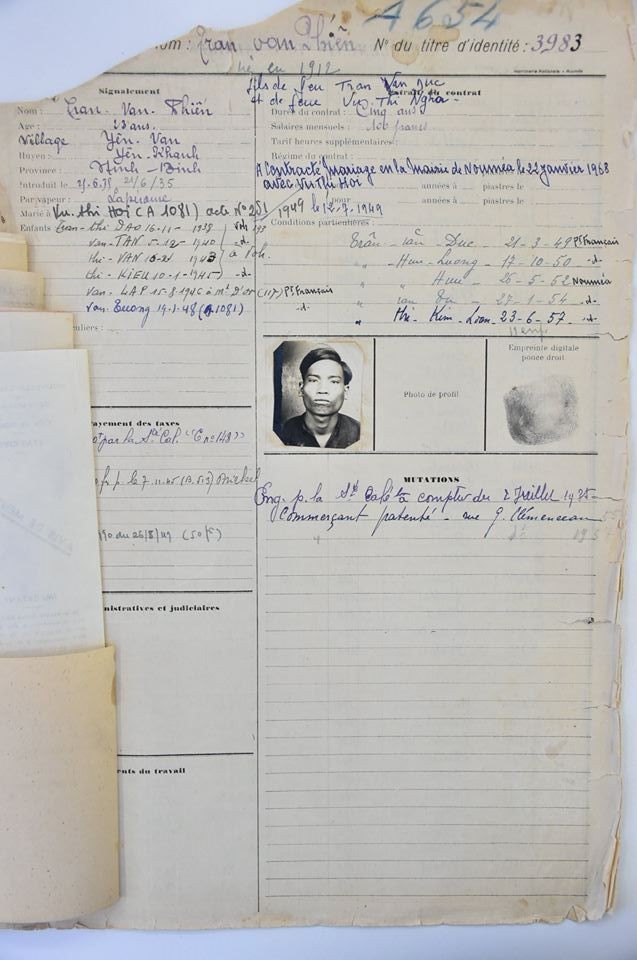 A 654
nom : Tran van Thiên N° du titre d'identité : 3983
né en 1912
Imprimerie Nationale - Nouméa
fils de feu Tran Van Duc
et de feue Vu Thi Ngha
Signalement
Nom : Tran - Van - Thiên
Age : 23 ans.
Village Yên Van
Huyen : Yên-Khanh
Province : Ninh - Binh
Introduit le 21/6/35
Par vapeur : Lapérouse
Marié à Vu-thi HOI (A 1081) acte N° 251 1949 le 12-7-1949
Enfants Tran-thi DAO 16-11- 1938
van-TAN 5-12- 1940 -d-
thi-VAN 1943 à Voh.
thi-KIEU 10-1-1945 -d-
van-LAP 15-8-1946 à Mt D'or (117) Pt Français
van-Tuong 19-1-48 (A 1081) -d-
culiers :
Extrait du contrat
Durée du contrat : Cinq ans
Salaires mensuels : 106 francs
Tarif heures supplémentaires :
Régime du contrat :
A Contracté Mariage en la Mairie de Nouméa le 22 janvier 1968
avec Vu Thi Hoi
années à piastres le
pour années à piastres le
Conditions particulières :
Trân - Van - Duc - 21-3-49 Pt Français
" Huu-Luong - 17-10-50 -d-
" " Huu - 26-5-52 Nouméa
" van Du - 27-1-54 -d-
" thi - Kim - Loan - 23-6-57 -d-
Photo de profil
Empreinte digitale
pouce droit
Payement des taxes
par la Sté Cal. "C n° 148"
p. le 7.11.45 (A.513) Michel
du 26/8/49 (50 fc)
MUTATIONS
Eng. p. la Sté Cafés à compter du 2 Juillet 1935
Commerçant patenté - rue G. Clémenceau
nistratives et judiciaires
ents du travail